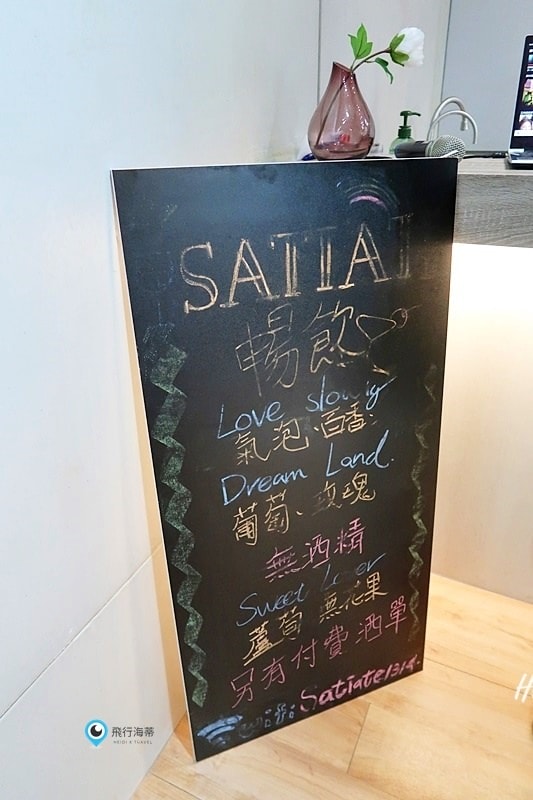 SATIAT
暢飲
Love slowly
氣泡、百香
Dream Land.
葡萄、玫瑰
無酒精
Sweet Lover
蘆薈 無花果
另有付費酒單
Satiate1314.
飛行海蒂
HEIDI'S TRAVEL
H